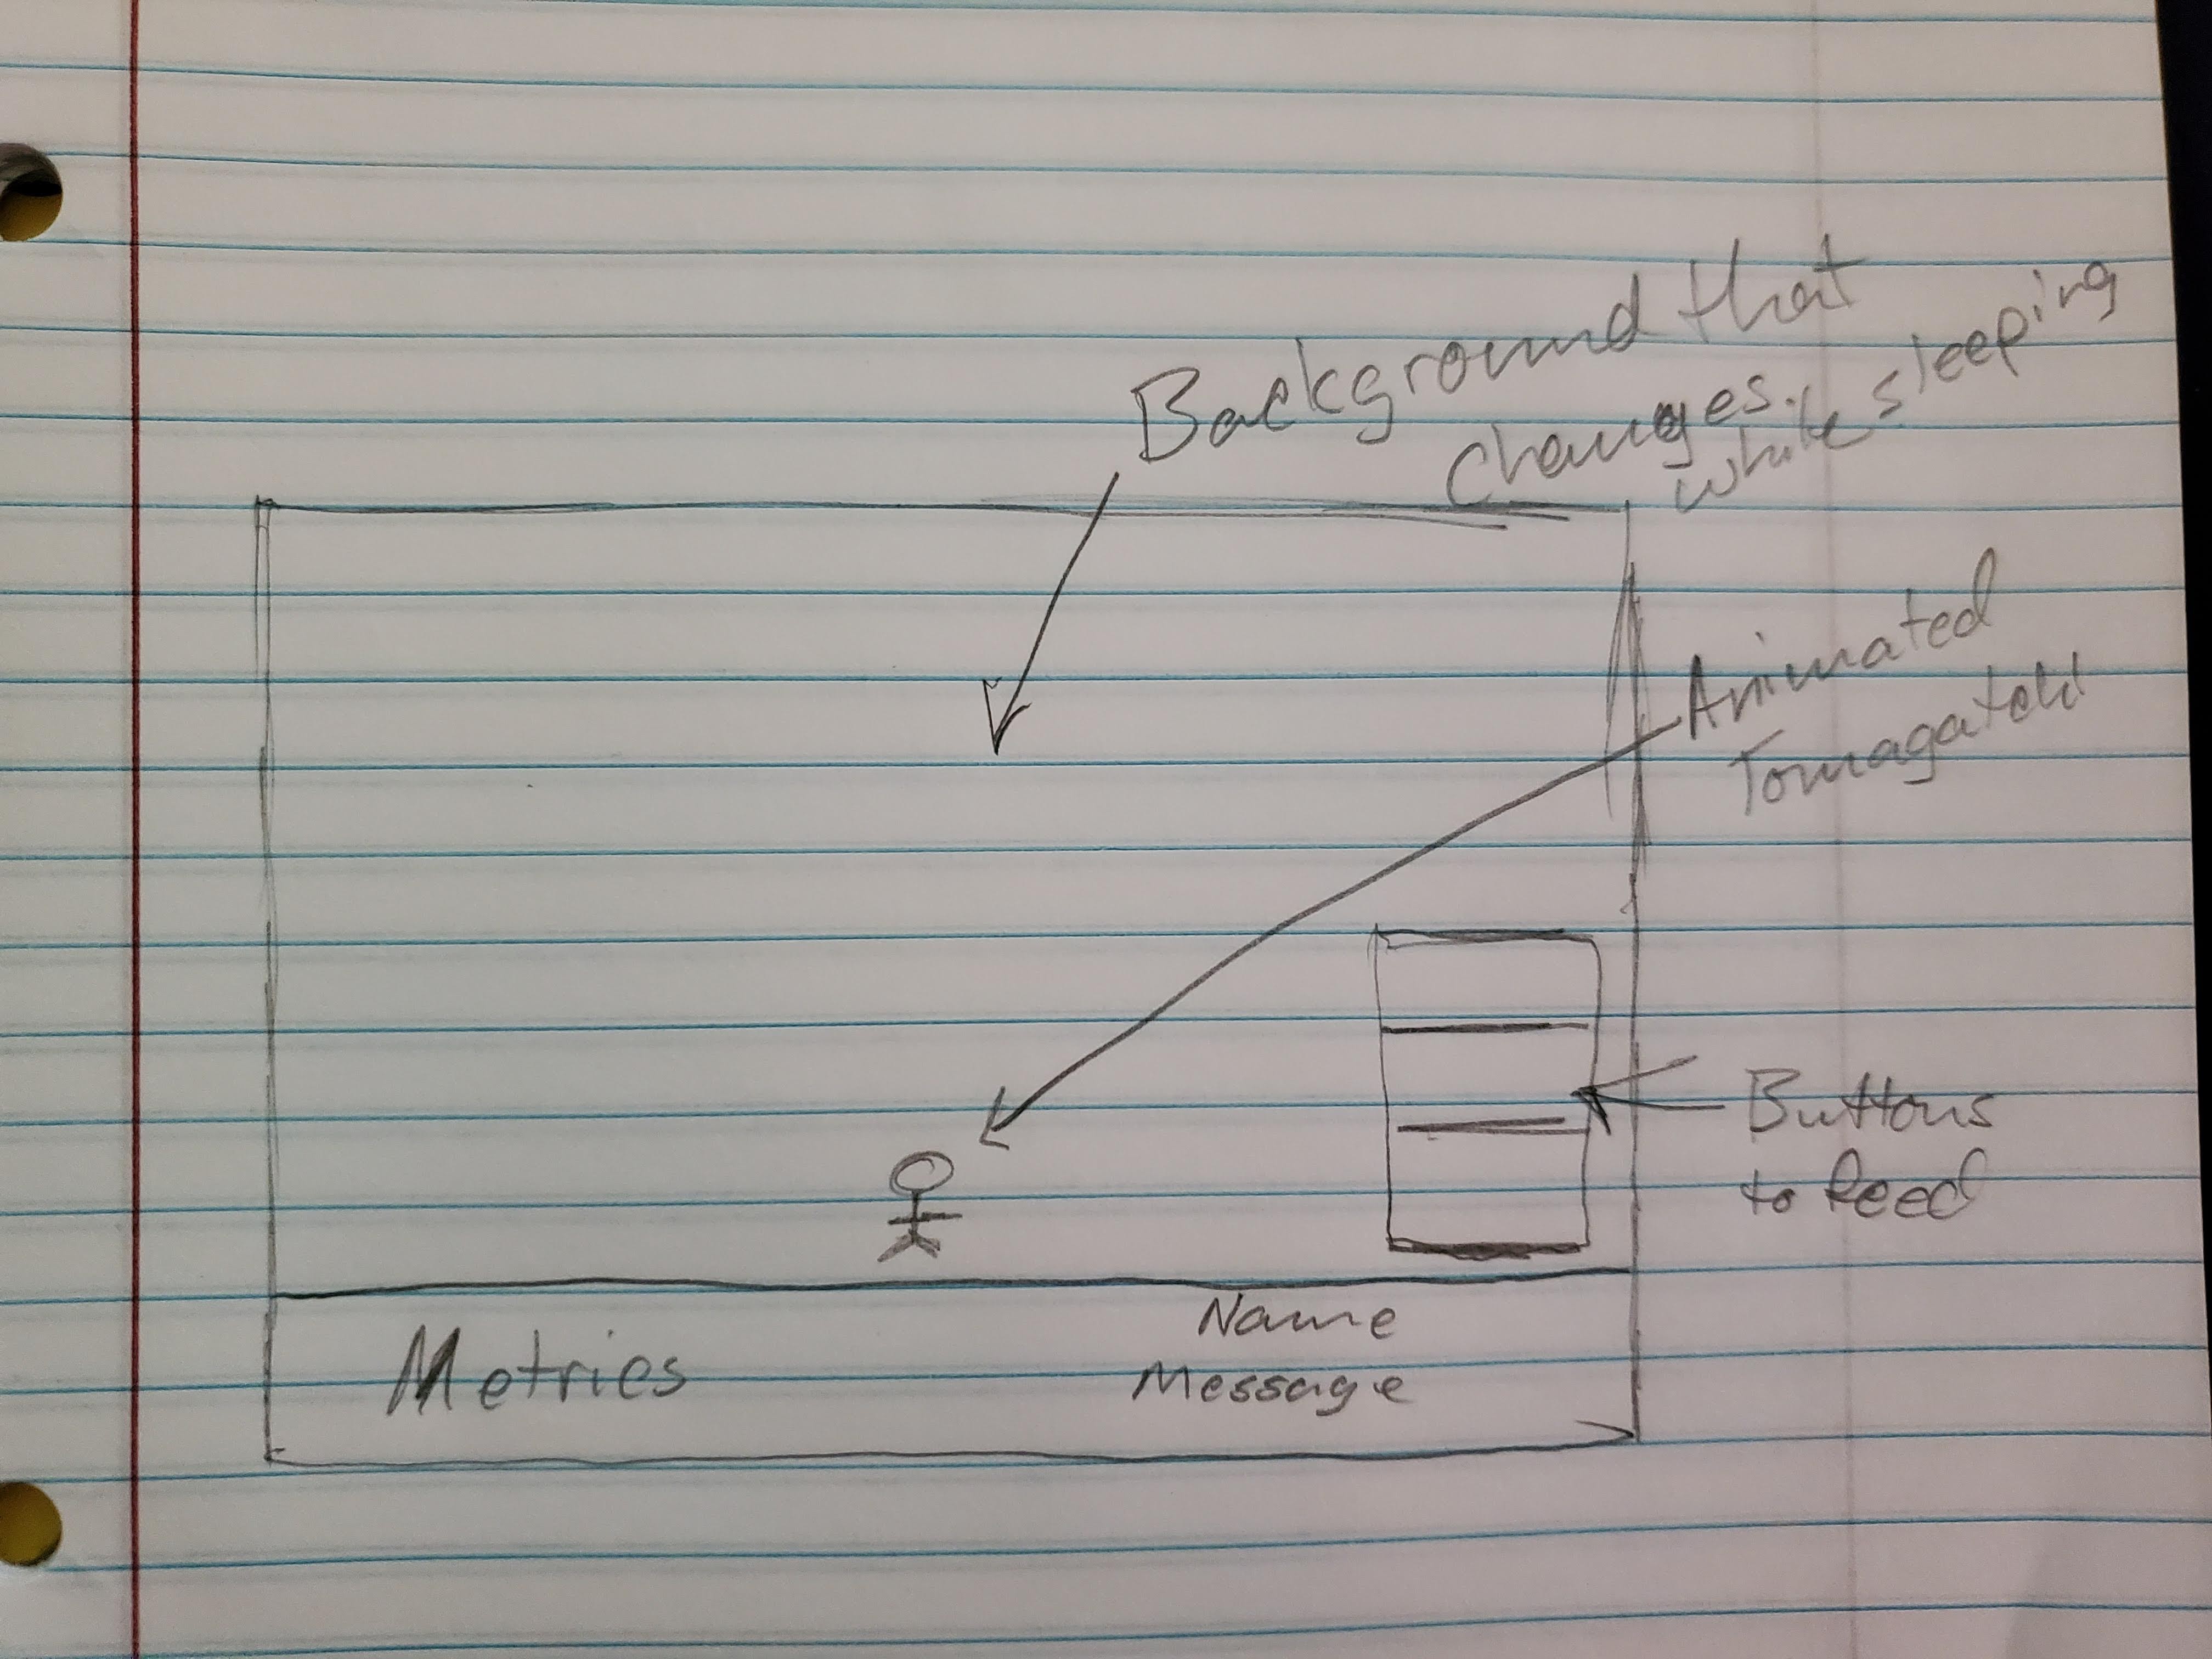 Background that
changes.
while sleeping
Animated
Tomagatchi
Buttons
to feed
Name
Metrics
Message